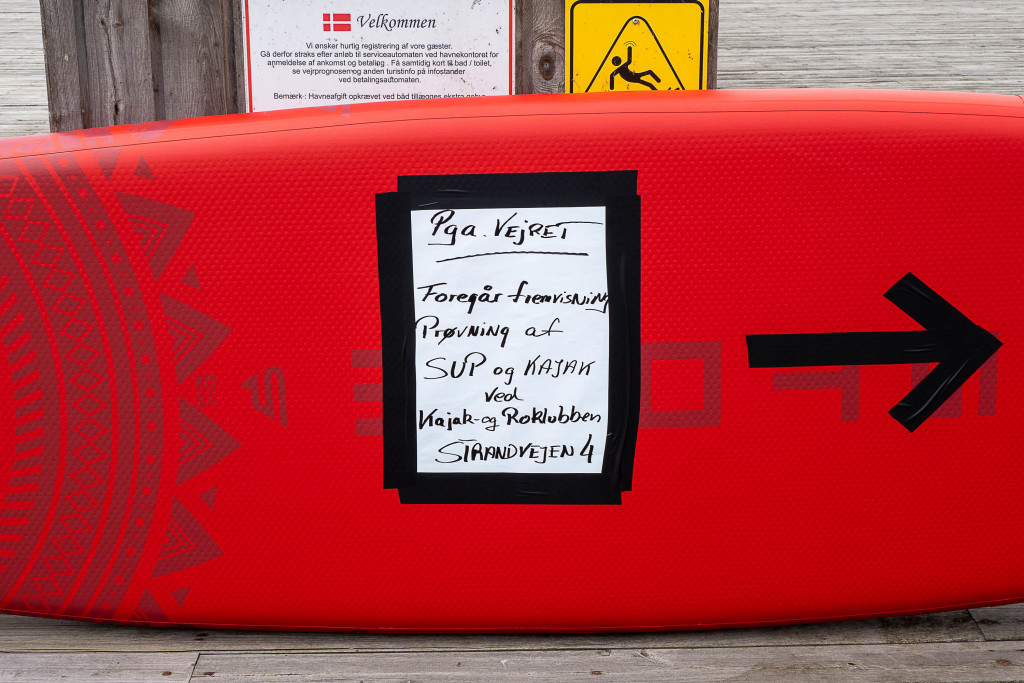 Velkommen
Vi ønsker hurtig registrering af vore gæster.
Gå derfor straks efter anløb til serviceautomaten ved havnekontoret for
anmeldelse af ankomst og betaling . Få samtidig kort til bad / toilet,
se vejrprognoser og anden turistinfo på infostander
ved betalingsautomaten.
Bemærk : Havneafgift opkrævet ved båd tillægges ekstra gebyr
Pga. VEJRET
Foregår fremvisning
Prøvning af
SUP og KAJAK
ved
Kajak- og Roklubben
STRANDVEJEN 4